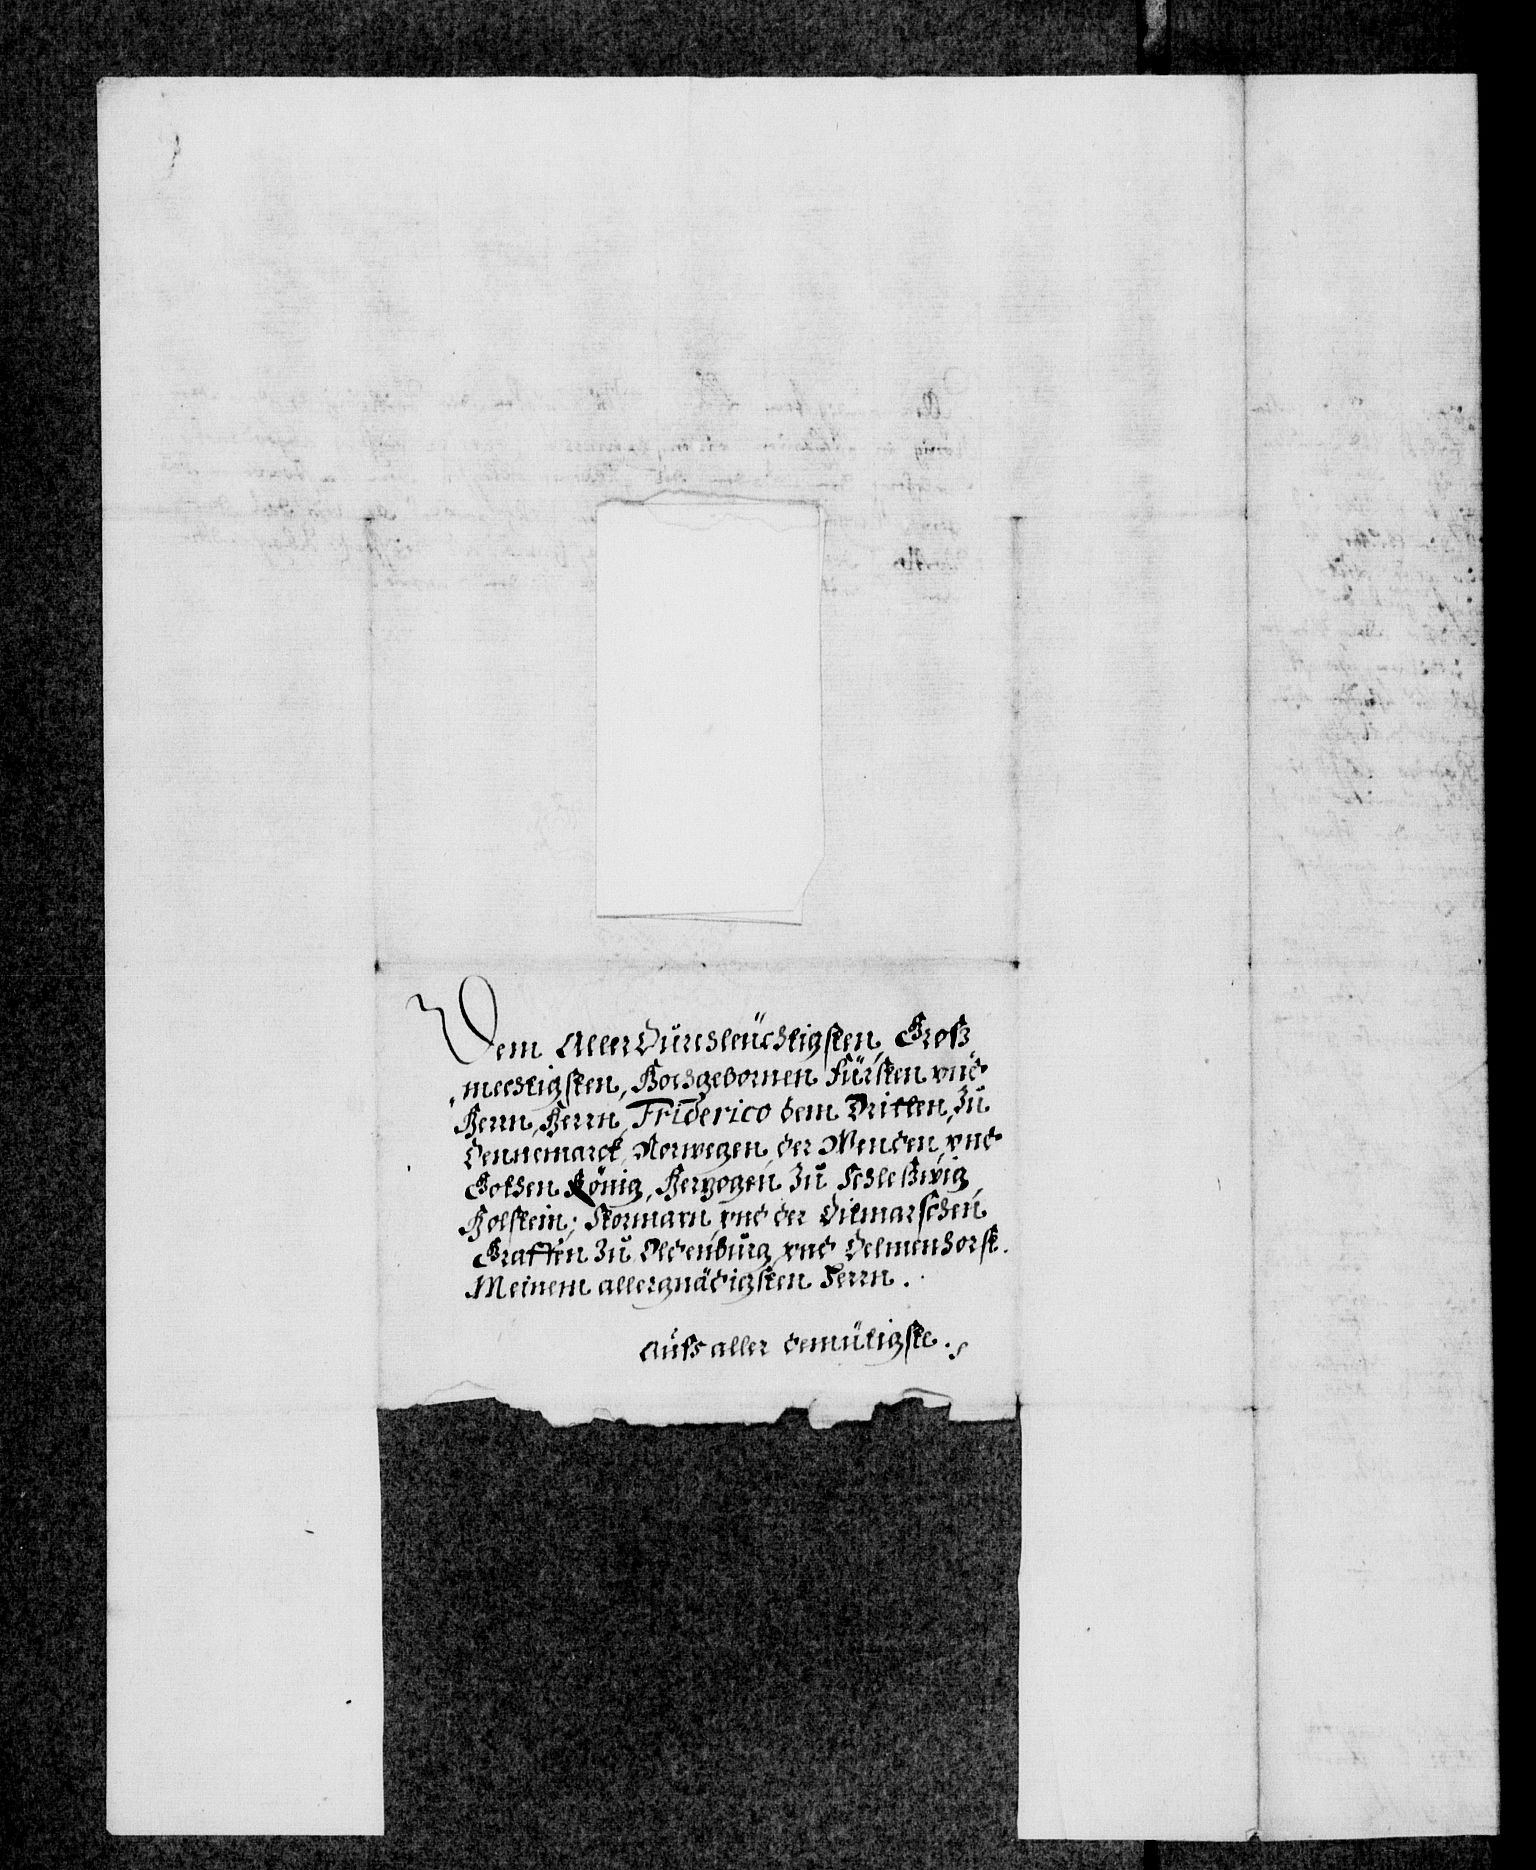 Dem AllerDurchleüchtigsten, Groß
mechtigsten, Hochgebornen Fürsten vnd
Herrn, Herrn, Friderico dem Dritten, Zu
Dennemarck, Norwegen, der Wenden, vnd
Gothen König, Hertzogen Zu Schleßwig,
Holstein, Stormarn, vnd der Ditmarschen,
Graffen Zu Oldenburg vnd Delmenhorst.
Meinem allergnädigsten Herrn.
Aufs aller demütigste.